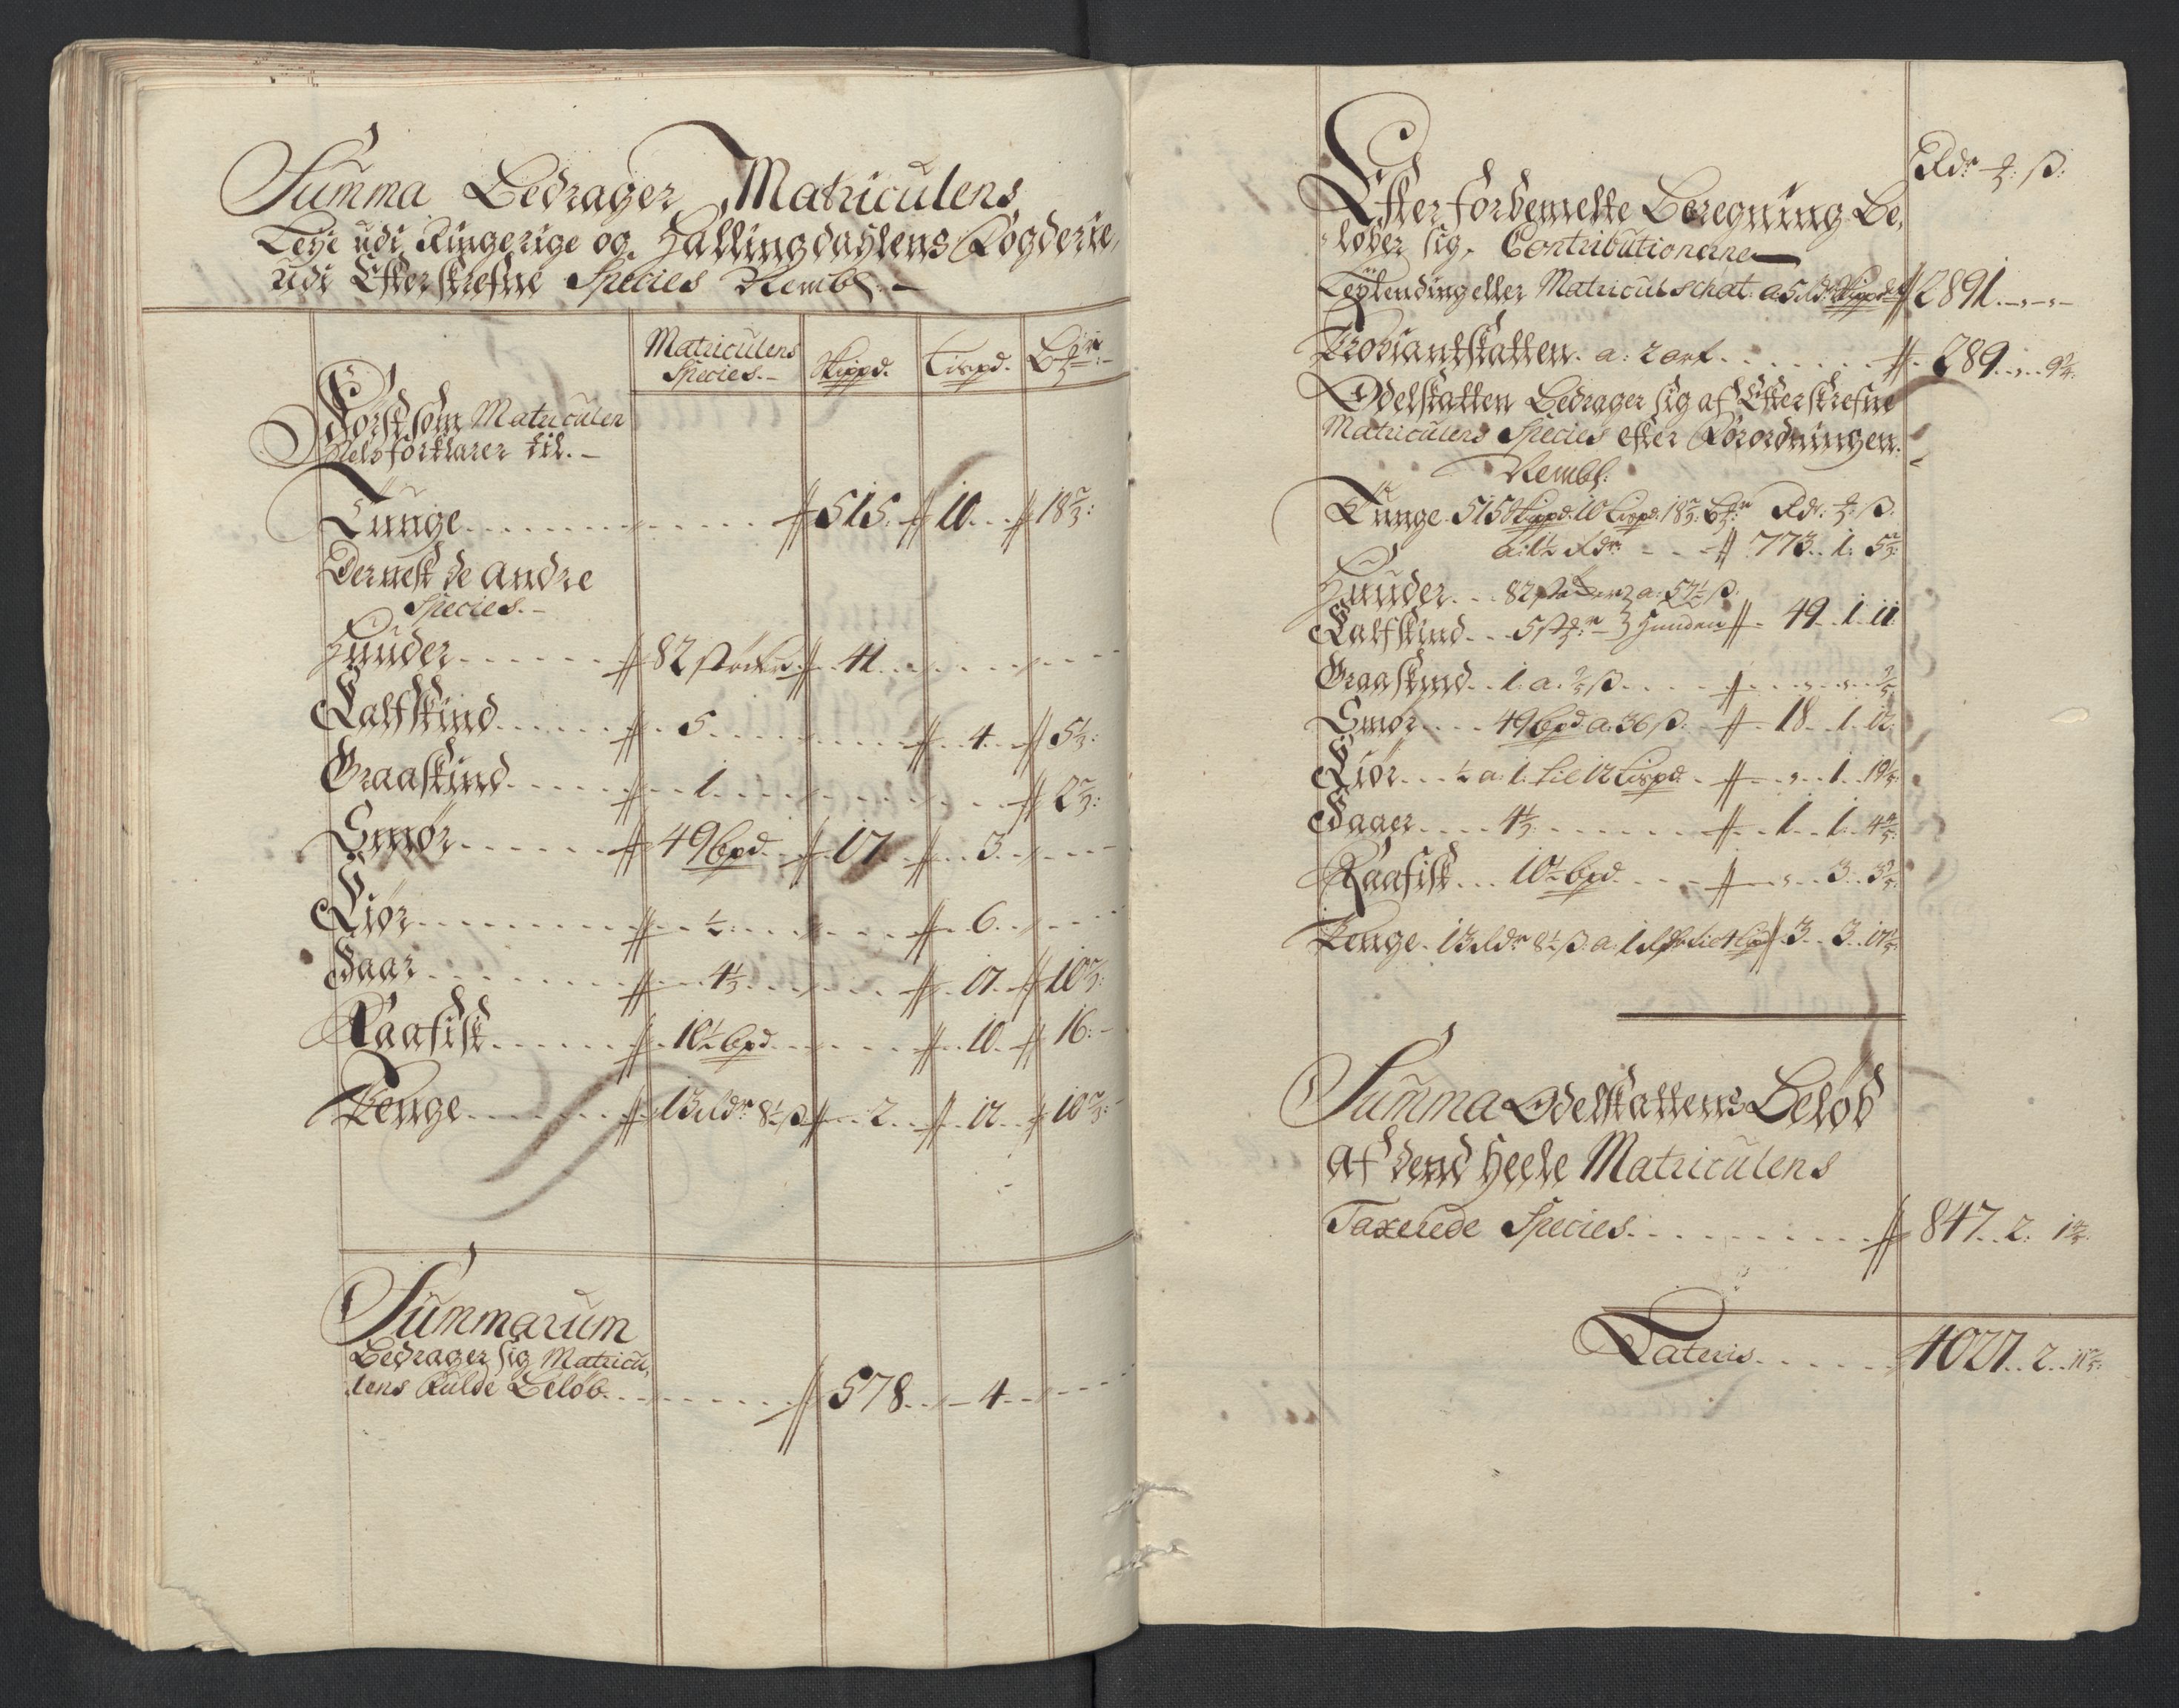 Summa Bedrager Matriculens
Leye udi Ringerige og Hallingdahlens Fogderie,
udi Efterskrefne Species Nembl: -
Matriculens Species. - Skippd. Lispd.
Først som Matriculen
Selv forklarer til. -
Tunge 515. 10. 18 2/3:
Dernest de Andre
Species. -
Huuder 82 støcher 41.
Kalfskind 5 4. 5 1/3:
Graaskind 1 2 2/3:
Smør 49 bpd. 17. 3.
Tiør ½: 6.
Faar 4 1/3 17. 10 2/3:
Raafisk 10½ bpd 10. 16: -
Penge 13 rdr 8½ ß 2. 12. 10 2/3: -
Summarum
Bedrager sig Matricu-
lens fulde Beløb. 578. 4.
Rdr ß:
Efter forbemelte Beregning Be-
løber sig, Contributionerne
Leylending eller Matricul schat a 5 rdr Skippdt 2891.
Proviantskatten. a: 2 ort. 289. 9 2/4:
Odelskatten Bedrager sig af Efterskrefne
Matriculens Species efter Forordningen.
Nembl:
Tunge 515 Skippd. 10 Lispd. 18 2/3: Rdr: ß:
a: 1½ Rdr: 773. 1. 5 2/3:
Huuder. 82 støcher a: 57½ ß.
Kalfskind. 5 3 Hunden 49. 1. 11:
Graaskind. 1: a: ß.
Smør. 49 bpd. a: 36 ß: 18. 1. 12:
Tiør. ½ a: 1: til 12 Lispd. 1. 19 1/5:
Faaer. 4 1/3: 1. 1. 4 4/5:
Raafisk. 10½ bpd. 3. 3 3/5:
Penge. 13 rdr 8½ ß: a: 1 3. 3. 17 1/5:
Summa Odelskattens Beløb
af dend heele Matriculens
Taxerede Species. 847. 2. 1
Lateris. 4027. 2. 11